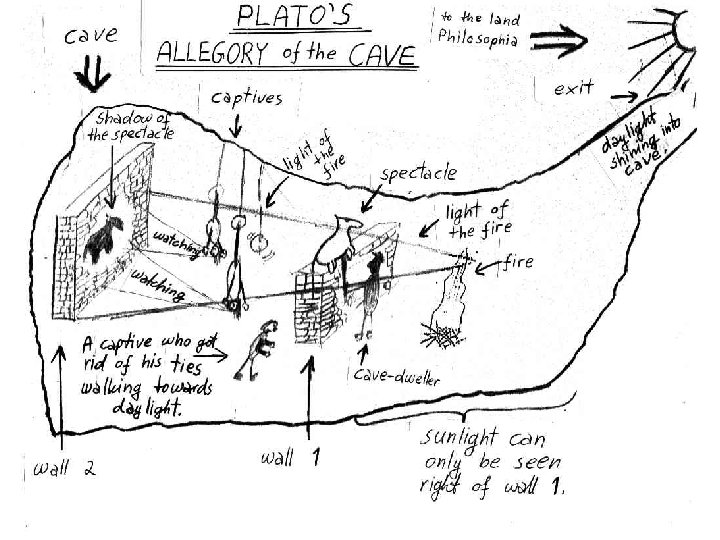 PLATO'S
ALLEGORY of the CAVE
cave
to the land
Philosophia
exit
daylight
shining into
cave.
shadow of
the spectacle
captives
light of
the
fire
spectacle
light of
the fire
fire
watching
watching
A captive who got
rid of his ties
walking towards
daylight.
cave-dweller
wall 2
wall 1
sunlight can
only be seen
right of wall 1.